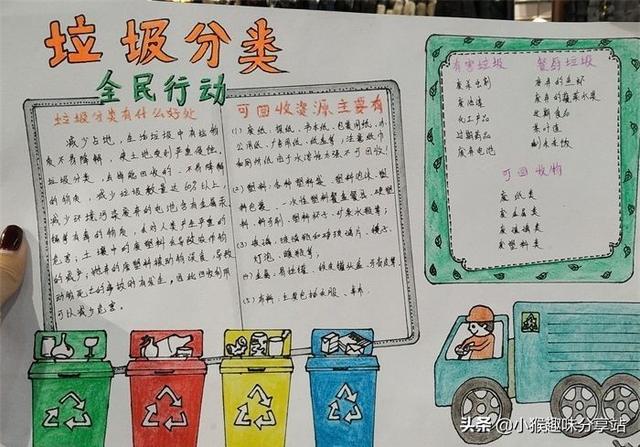 垃圾分类
全民行动
垃圾分类有什么好处
减少占地，生活垃圾中有些物
质不易降解，使土地受到严重侵蚀。
垃圾分类，去掉能回收的、不易降解
的物质，减少垃圾数量达60%以上。
减少环境污染废弃的电池含有金属汞、
镉等有毒的物质，会对人类产生严重的
危害；土壤中的废塑料会导致农作物
减产；抛弃的废塑料被动物误食，导致
动物死亡的事故时有发生，因此回收利用
可以减少危害。
可回收资源主要有
(1) 废纸：报纸、书本纸、包装用纸、办
公用纸、广告用纸、纸盒等；注意纸巾
和厕所纸由于水溶性太强不可回收！
(2) 塑料：各种塑料袋、塑料泡沫、塑
料包装、一次性塑料餐盒餐具、硬塑
料、塑料牙刷、塑料杯子、矿泉水瓶等；
(3) 玻璃：玻璃瓶和碎玻璃片、镜子、
灯泡、暖瓶等；
(4) 金属：易拉罐、铁皮罐头盒、牙膏皮等。
(5) 布料：主要包括衣服、
有害垃圾
废水银
废油漆
化工产品
过期药品
废弃电池
餐厨垃圾
废弃的
废弃的蔬菜水果
过期食品
果汁渣
剩菜
可回收物
废纸类
废金属类
废玻璃类
废塑料类
头条 @小猴趣味分享站